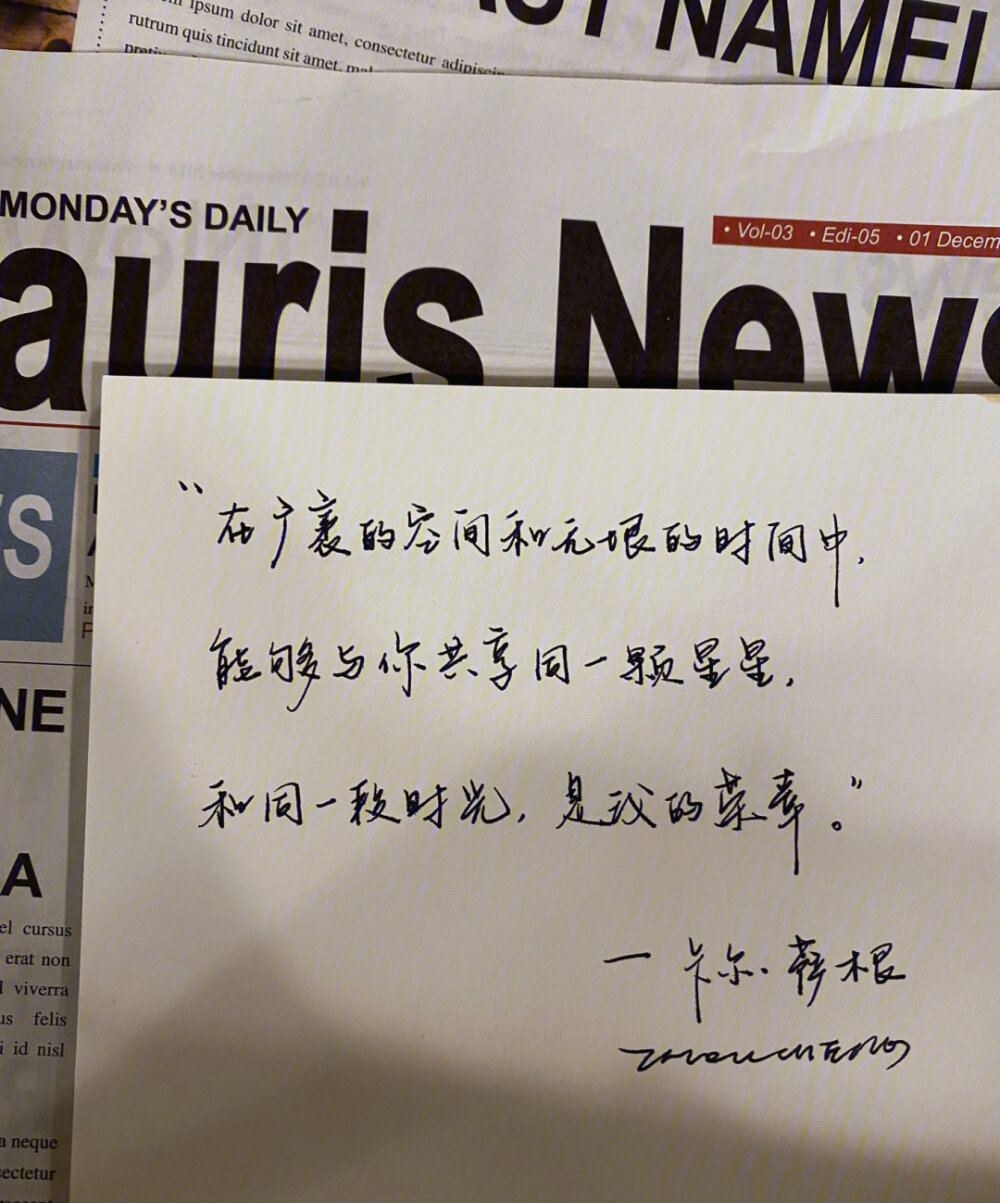 ipsum dolor sit amet, consectetur adipiscin
rutrum quis tincidunt sit amet, mal
AST NAME
MONDAY'S DAILY
• Vol-03 • Edi-05 • 01 Decem
auris News
S
NE
A
el cursus
erat non
viverra
us felis
id nisl
a neque
sectetur
“在广袤的空间和无垠的时间中,
能够与你共享同一颗星星,
和同一段时光,是我的荣幸。”
一卡尔·萨根